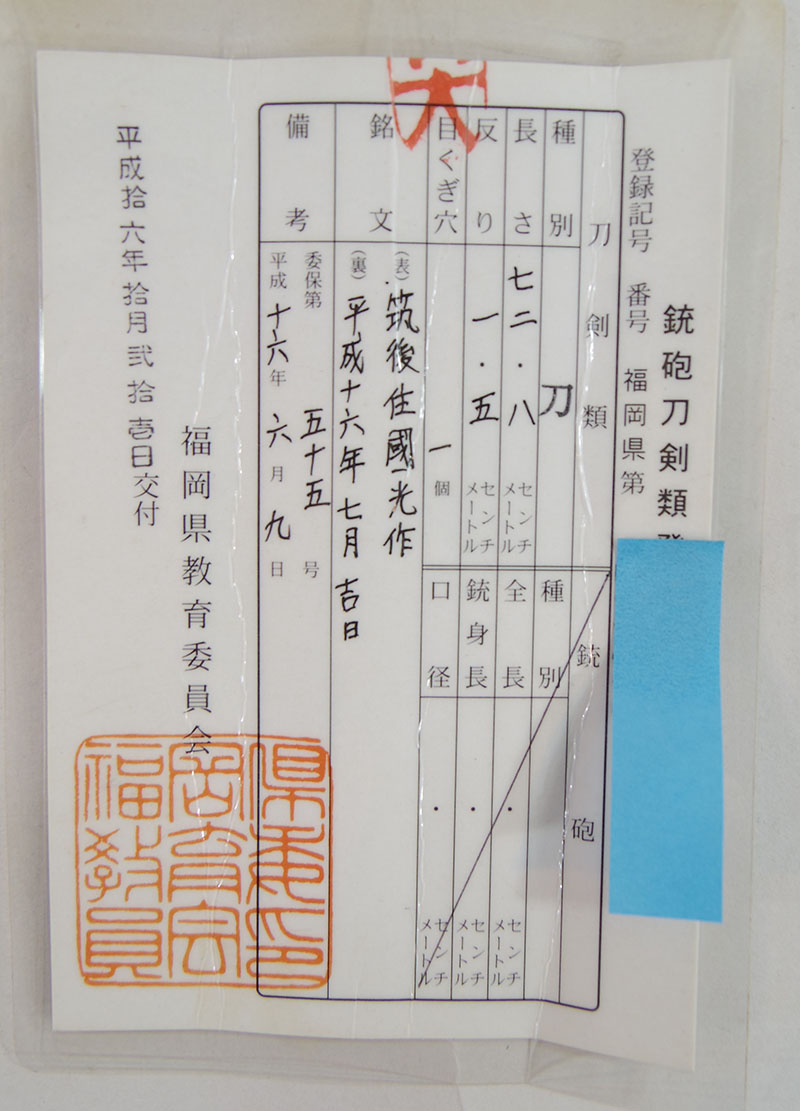 銃砲刀剣類
登録記号 番号 福岡県第
刀剣類
種別 刀
長さ 七二・八 センチメートル
反り 一・五 センチメートル
目くぎ穴 一個
銃砲
種別
全長 ・ センチメートル
銃身長 ・ センチメートル
口径 ・ センチメートル
銘文
(表) 筑後住國光作
(裏) 平成十六年七月吉日
備考
委保第 五十五 号
平成 十六年 六月 九日
福岡県教育委員会
平成拾六年拾月弐拾壱日交付
県委印
岡育会
福教員